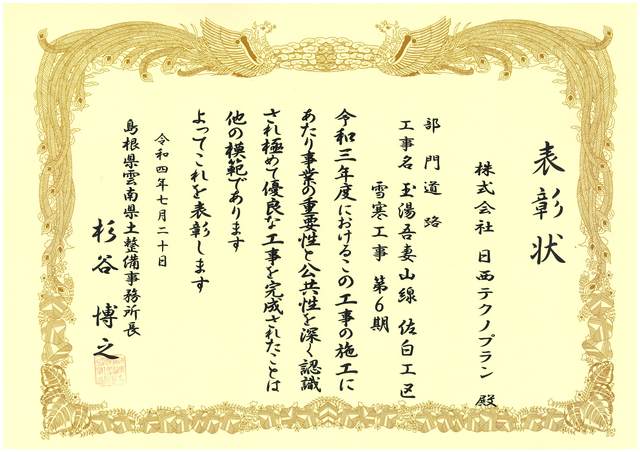 表彰状
株式会社 日西テクノプラン 殿
部門道路
工事名 玉湯吾妻山線 佐白工区
雪寒工事 第6期
令和三年度におけるこの工事の施工に
あたり事業の重要性と公共性を深く認識
され極めて優良な工事を完成されたことは
他の模範であります
よってこれを表彰します
令和四年七月二十日
島根県雲南県土整備事務所長
杉谷 博之